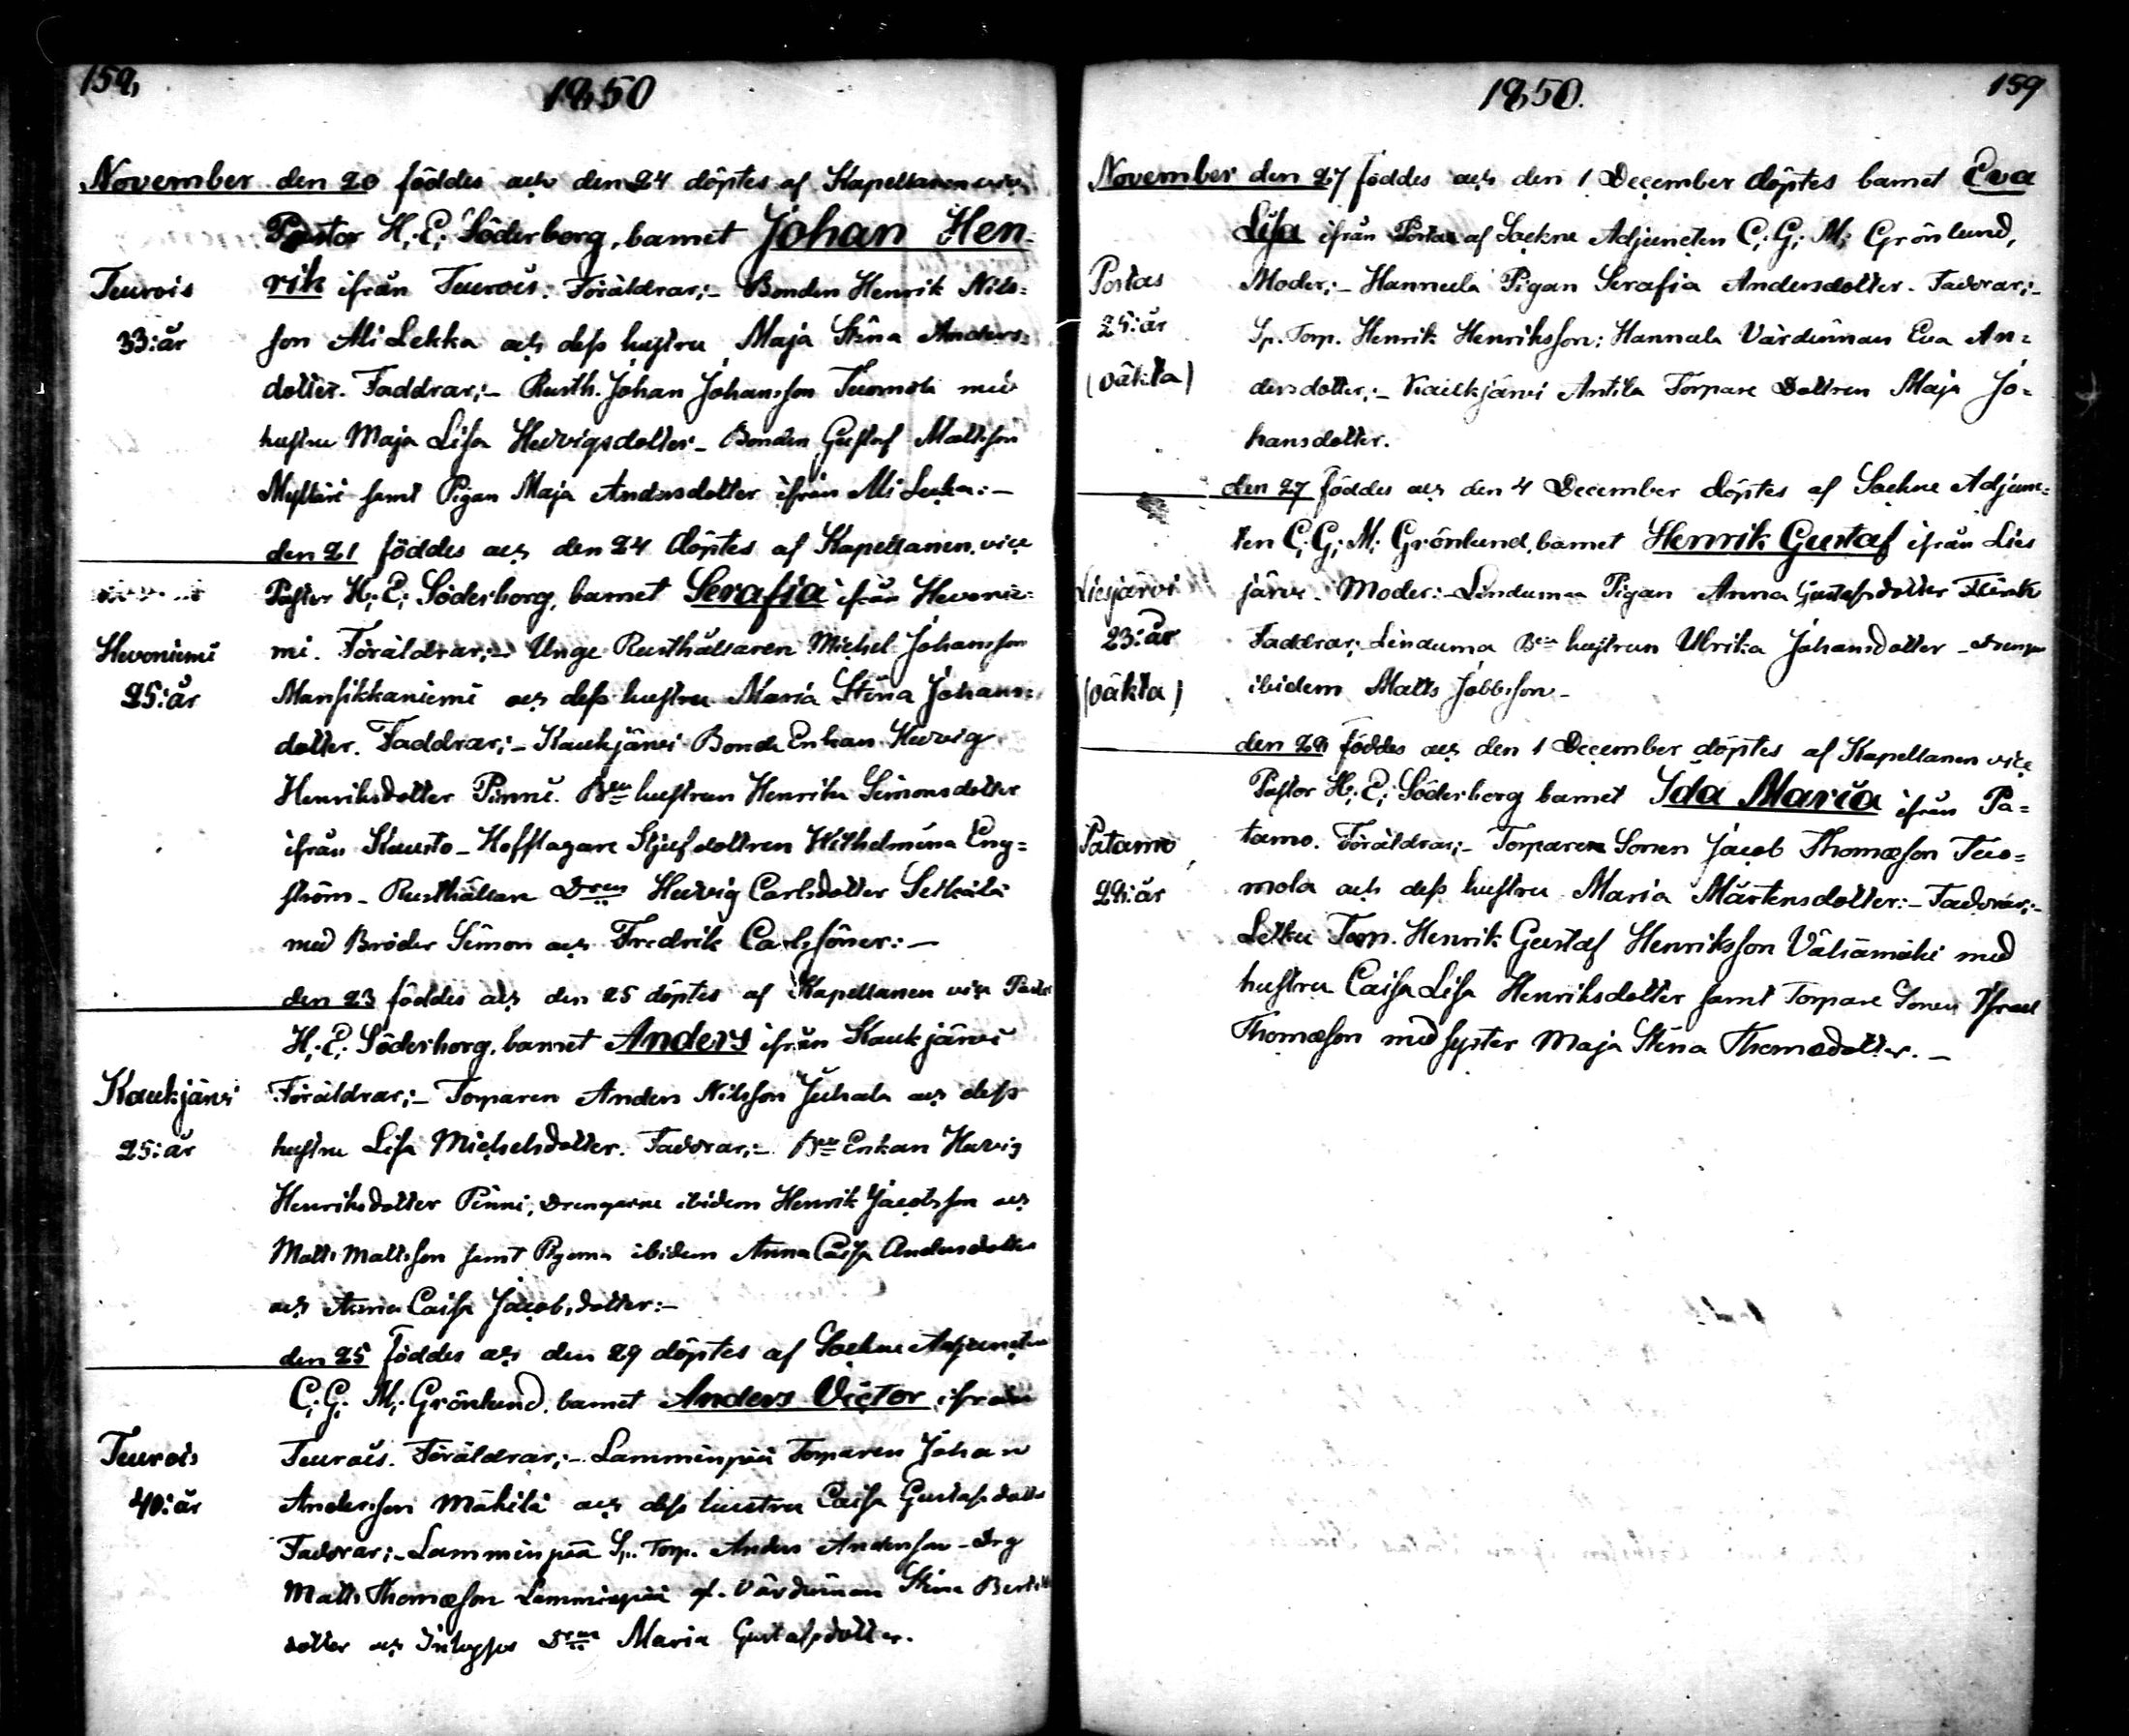 159,
1850
November den 20 föddes och den 24 döptes af Kapellanen vice
Pastor H. E. Söderborg, barnet Johan Hen=
Teurois
rik ifrån Teurois. Föräldrar;- Bonden Henrik Nils=
33: år
son Ali Lekka och dess hustru Maja Stina Anders=
dotter. Faddrar;- Rusth. Johan Johansson Tuomola med
hustru Maja Lisa Hedvigsdotter - Bonden Gustaf Mattsson
Mylläri samt Pigan Maja Andersdotter ifrån Ali Lecka:-
den 21 föddes och den 24 döptes af Kapellanen vice
Pastor H. E. Söderborg, barnet Serafia ifrån Hevonie=
Hevoniemi
mi. Föräldrar;- Unge Rusthållaren Michel Johansson
25: år
Mansikkaniemi och dess hustru Maria Stina Johans=
dotter. Faddrar;- Kaukjärvi Bonde Enkan Hedvig
Henriksdotter Pinni. Bde hustrun Henrika Simonsdotter
ifrån Kausto - Hofslagare Stjufdottren Wilhelmina Eng=
ström - Rusthållare Dren Hedvig Carlsdotter Seikilä
med Bröder Simon och Fredrik Carlssöner:-
den 23 föddes och den 25 döptes af Kapellanen vice Pastor
H. E. Söderborg, barnet Anders ifrån Kaukjärvi
Kaukjärvi
Föräldrar;- Torparen Anders Nilsson Juhala och dess
25: år
hustru Lisa Michelsdotter. Faddrar;- Bde Enkan Hedvig
Henriksdotter Pinni, Drengarne ibidem Henrik Jacobsson och
Matts Mattsson samt Pigorna ibidem Anna Caisa Andersdotter
och Anna Caisa Jacobsdotter:-
den 25 föddes och den 29 döptes af Sockne Adjuncten
C. G. M. Grönlund, barnet Anders Victor ifrån
Teurois
Teurois. Föräldrar;- Lamminpää Torparen Johan
40: år
Andersson Mäkilä och dess hustru Caisa Gustafsdotter
Faddrar;- Lamminpää Sp. Torp. Anders Andersson - Drg
Matts Thomasson Lamminpää gl. Värdinnan Stina Bertils
dotter och Inhyses Dren Maria Gustafsdotter.
1850.
159
November den 27 föddes och den 1 December döptes barnet Eva
Lisa ifrån Portas af Sockne Adjuncten C. G. M. Grönlund,
Portas
Moder;- Hannula Pigan Serafia Andersdotter. Faddrar;-
25: år
Sp. Torp. Henrik Henriksson: Hannula Värdinnan Eva An=
(oäkta)
dersdotter;- Kaukjärvi Antila Torpare Dottren Maja Jo=
hansdotter.
den 27 föddes och den 4 December döptes af Sockne Adjunc=
ten C. G. M. Grönlund, barnet Henrik Gustaf ifrån Lies
Liesjärvi
järvi. Moder:- Linduma Pigan Anna Gustafsdotter Flink
23: år
Faddrar; Linduma Bde hustrun Ulrika Johansdotter - Drengen
(oäkta)
ibidem Matts Jobbsson -
den 28 föddes och den 1 December döptes af Kapellanen vice
Pastor H. E. Söderborg barnet Ida Maria ifrån Pa=
Patamo
tamo. Föräldrar;- Torparen Sonen Jacob Thomasson Tuo=
24: år
mola och dess hustru Maria Mårtensdotter:- Faddrar;-
Letku Torp. Henrik Gustaf Henriksson Väliämäki med
hustru Caisa Lisa Henriksdotter samt Torpare Sonen Israel
Thomasson med syster Maja Stina Thomasdotter. -